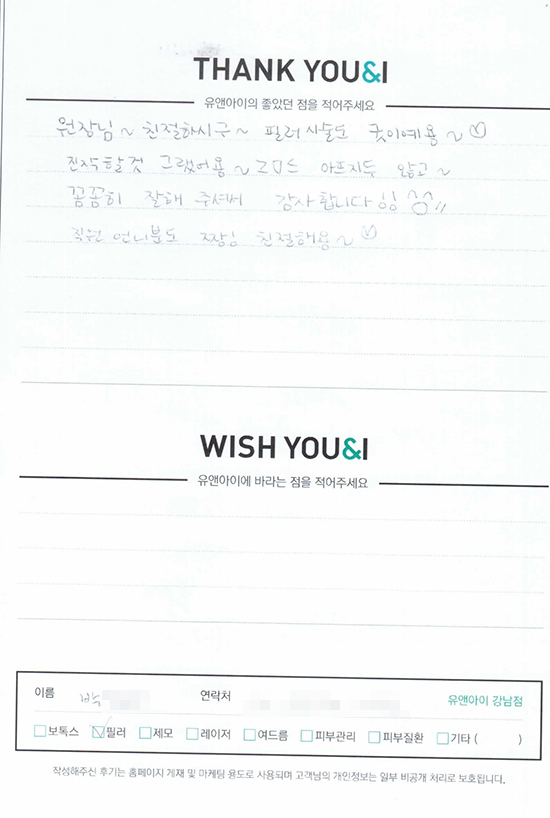 THANK YOU&I
유앤아이의 좋았던 점을 적어주세요
원장님~ 친절하시구~ 필러시술도 굿이예용~
진작할껄 그랬어용~ 아프지두 않고~
꼼꼼히 잘해 주셔써 감사합니다!!
직원 언니분도 짱! 친절해용~
WISH YOU&I
유앤아이에 바라는 점을 적어주세요
이름 박 연락처 유앤아이 강남점
보톡스 필러 제모 레이저 여드름 피부관리 피부질환 기타 ( )
작성해주신 후기는 홈페이지 게재 및 마케팅 용도로 사용되며 고객님의 개인정보는 일부 비공개 처리로 보호됩니다.